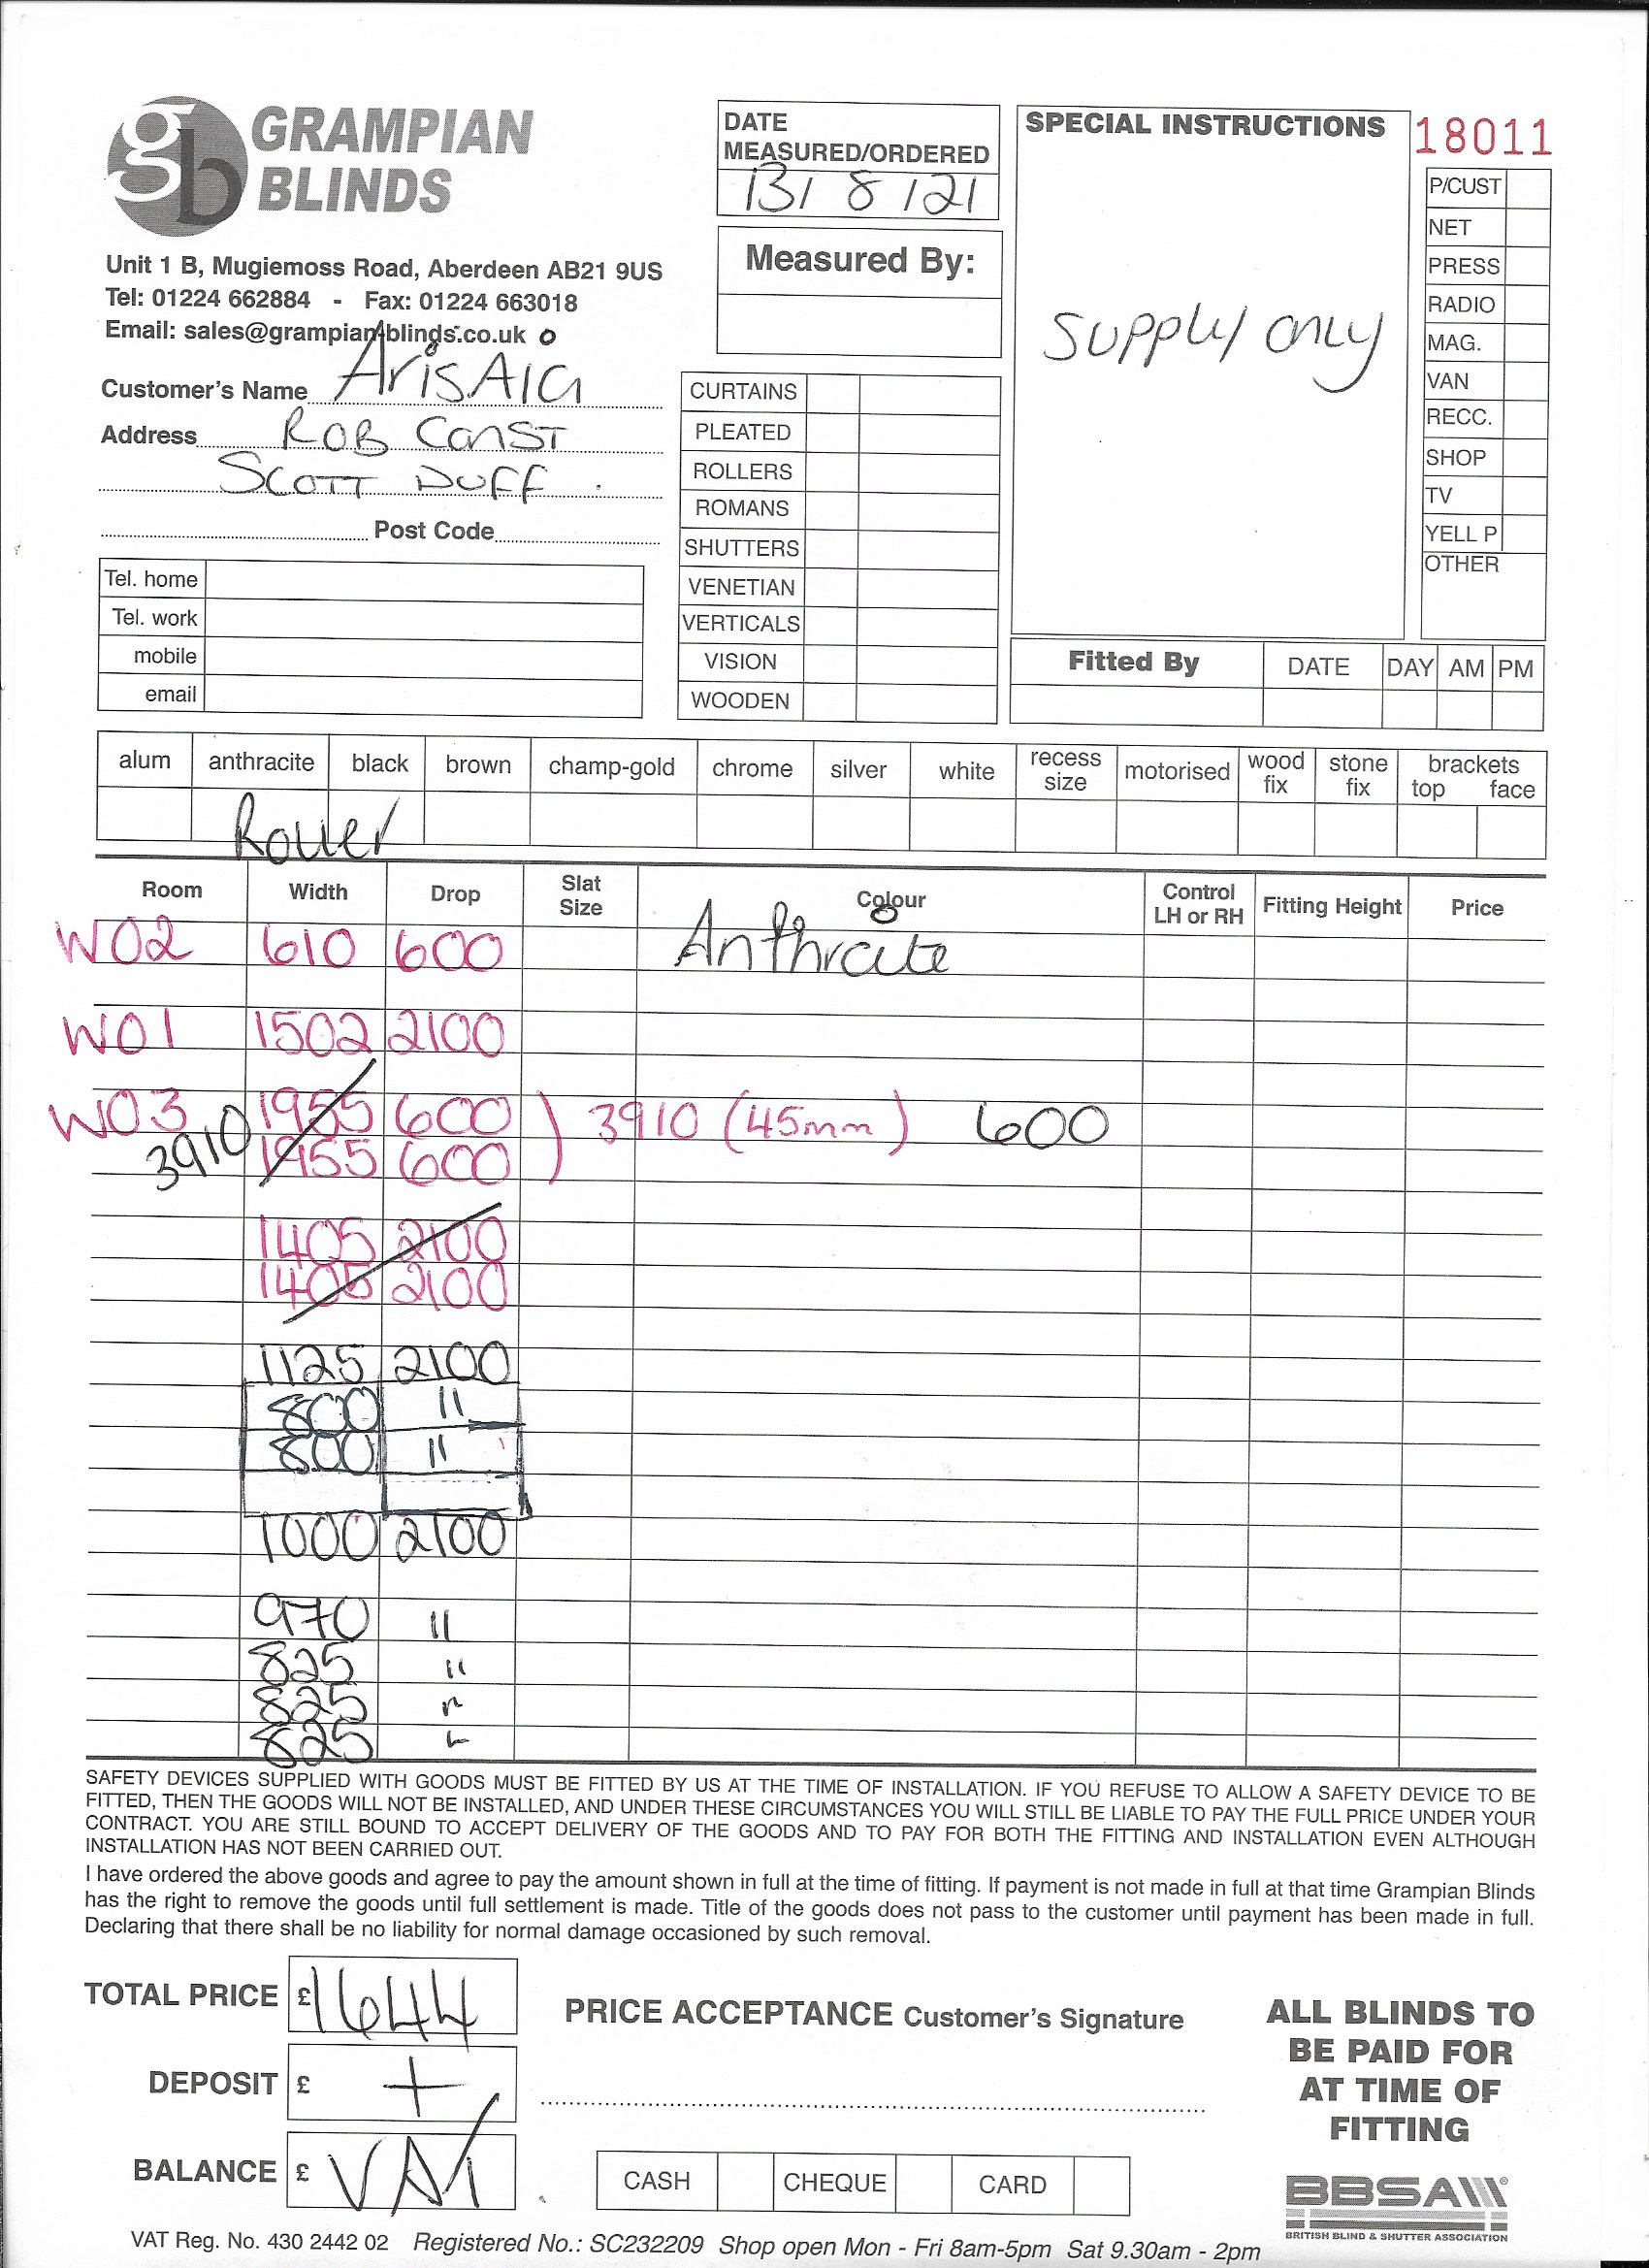 gb GRAMPIAN
BLINDS
Unit 1 B, Mugiemoss Road, Aberdeen AB21 9US
Tel: 01224 662884 - Fax: 01224 663018
Email: sales@grampianblinds.co.uk
Customer's Name ArisAIG
Address ROB CONST
SCOTT DUFF .
Post Code
Tel. home
Tel. work
mobile
email
DATE
MEASURED/ORDERED
13/ 8 /21
Measured By:
CURTAINS
PLEATED
ROLLERS
ROMANS
SHUTTERS
VENETIAN
VERTICALS
VISION
WOODEN
SPECIAL INSTRUCTIONS
Supply only
18011
P/CUST
NET
PRESS
RADIO
MAG.
VAN
RECC.
SHOP
TV
YELL P
OTHER
Fitted By DATE DAY AM PM
alum anthracite black brown champ-gold chrome silver white recess size motorised wood fix stone fix brackets top face
Roller
Room Width Drop Slat Size Colour Control LH or RH Fitting Height Price
W02 610 600 Anthracite
W01 1502 2100
W03 1955 600 ) 3910 (45mm) 600
3910 1955 600
1405 2100
1405 2100
1125 2100
800 "
800 "
1000 2100
970 "
825 "
825 "
825 "
SAFETY DEVICES SUPPLIED WITH GOODS MUST BE FITTED BY US AT THE TIME OF INSTALLATION. IF YOU REFUSE TO ALLOW A SAFETY DEVICE TO BE
FITTED, THEN THE GOODS WILL NOT BE INSTALLED, AND UNDER THESE CIRCUMSTANCES YOU WILL STILL BE LIABLE TO PAY THE FULL PRICE UNDER YOUR
CONTRACT. YOU ARE STILL BOUND TO ACCEPT DELIVERY OF THE GOODS AND TO PAY FOR BOTH THE FITTING AND INSTALLATION EVEN ALTHOUGH
INSTALLATION HAS NOT BEEN CARRIED OUT.
I have ordered the above goods and agree to pay the amount shown in full at the time of fitting. If payment is not made in full at that time Grampian Blinds
has the right to remove the goods until full settlement is made. Title of the goods does not pass to the customer until payment has been made in full.
Declaring that there shall be no liability for normal damage occasioned by such removal.
TOTAL PRICE £ 1644
DEPOSIT £ +
BALANCE £ VAT
PRICE ACCEPTANCE Customer's Signature
CASH CHEQUE CARD
ALL BLINDS TO
BE PAID FOR
AT TIME OF
FITTING
BBSA
BRITISH BLIND & SHUTTER ASSOCIATION
VAT Reg. No. 430 2442 02 Registered No.: SC232209 Shop open Mon - Fri 8am-5pm Sat 9.30am - 2pm